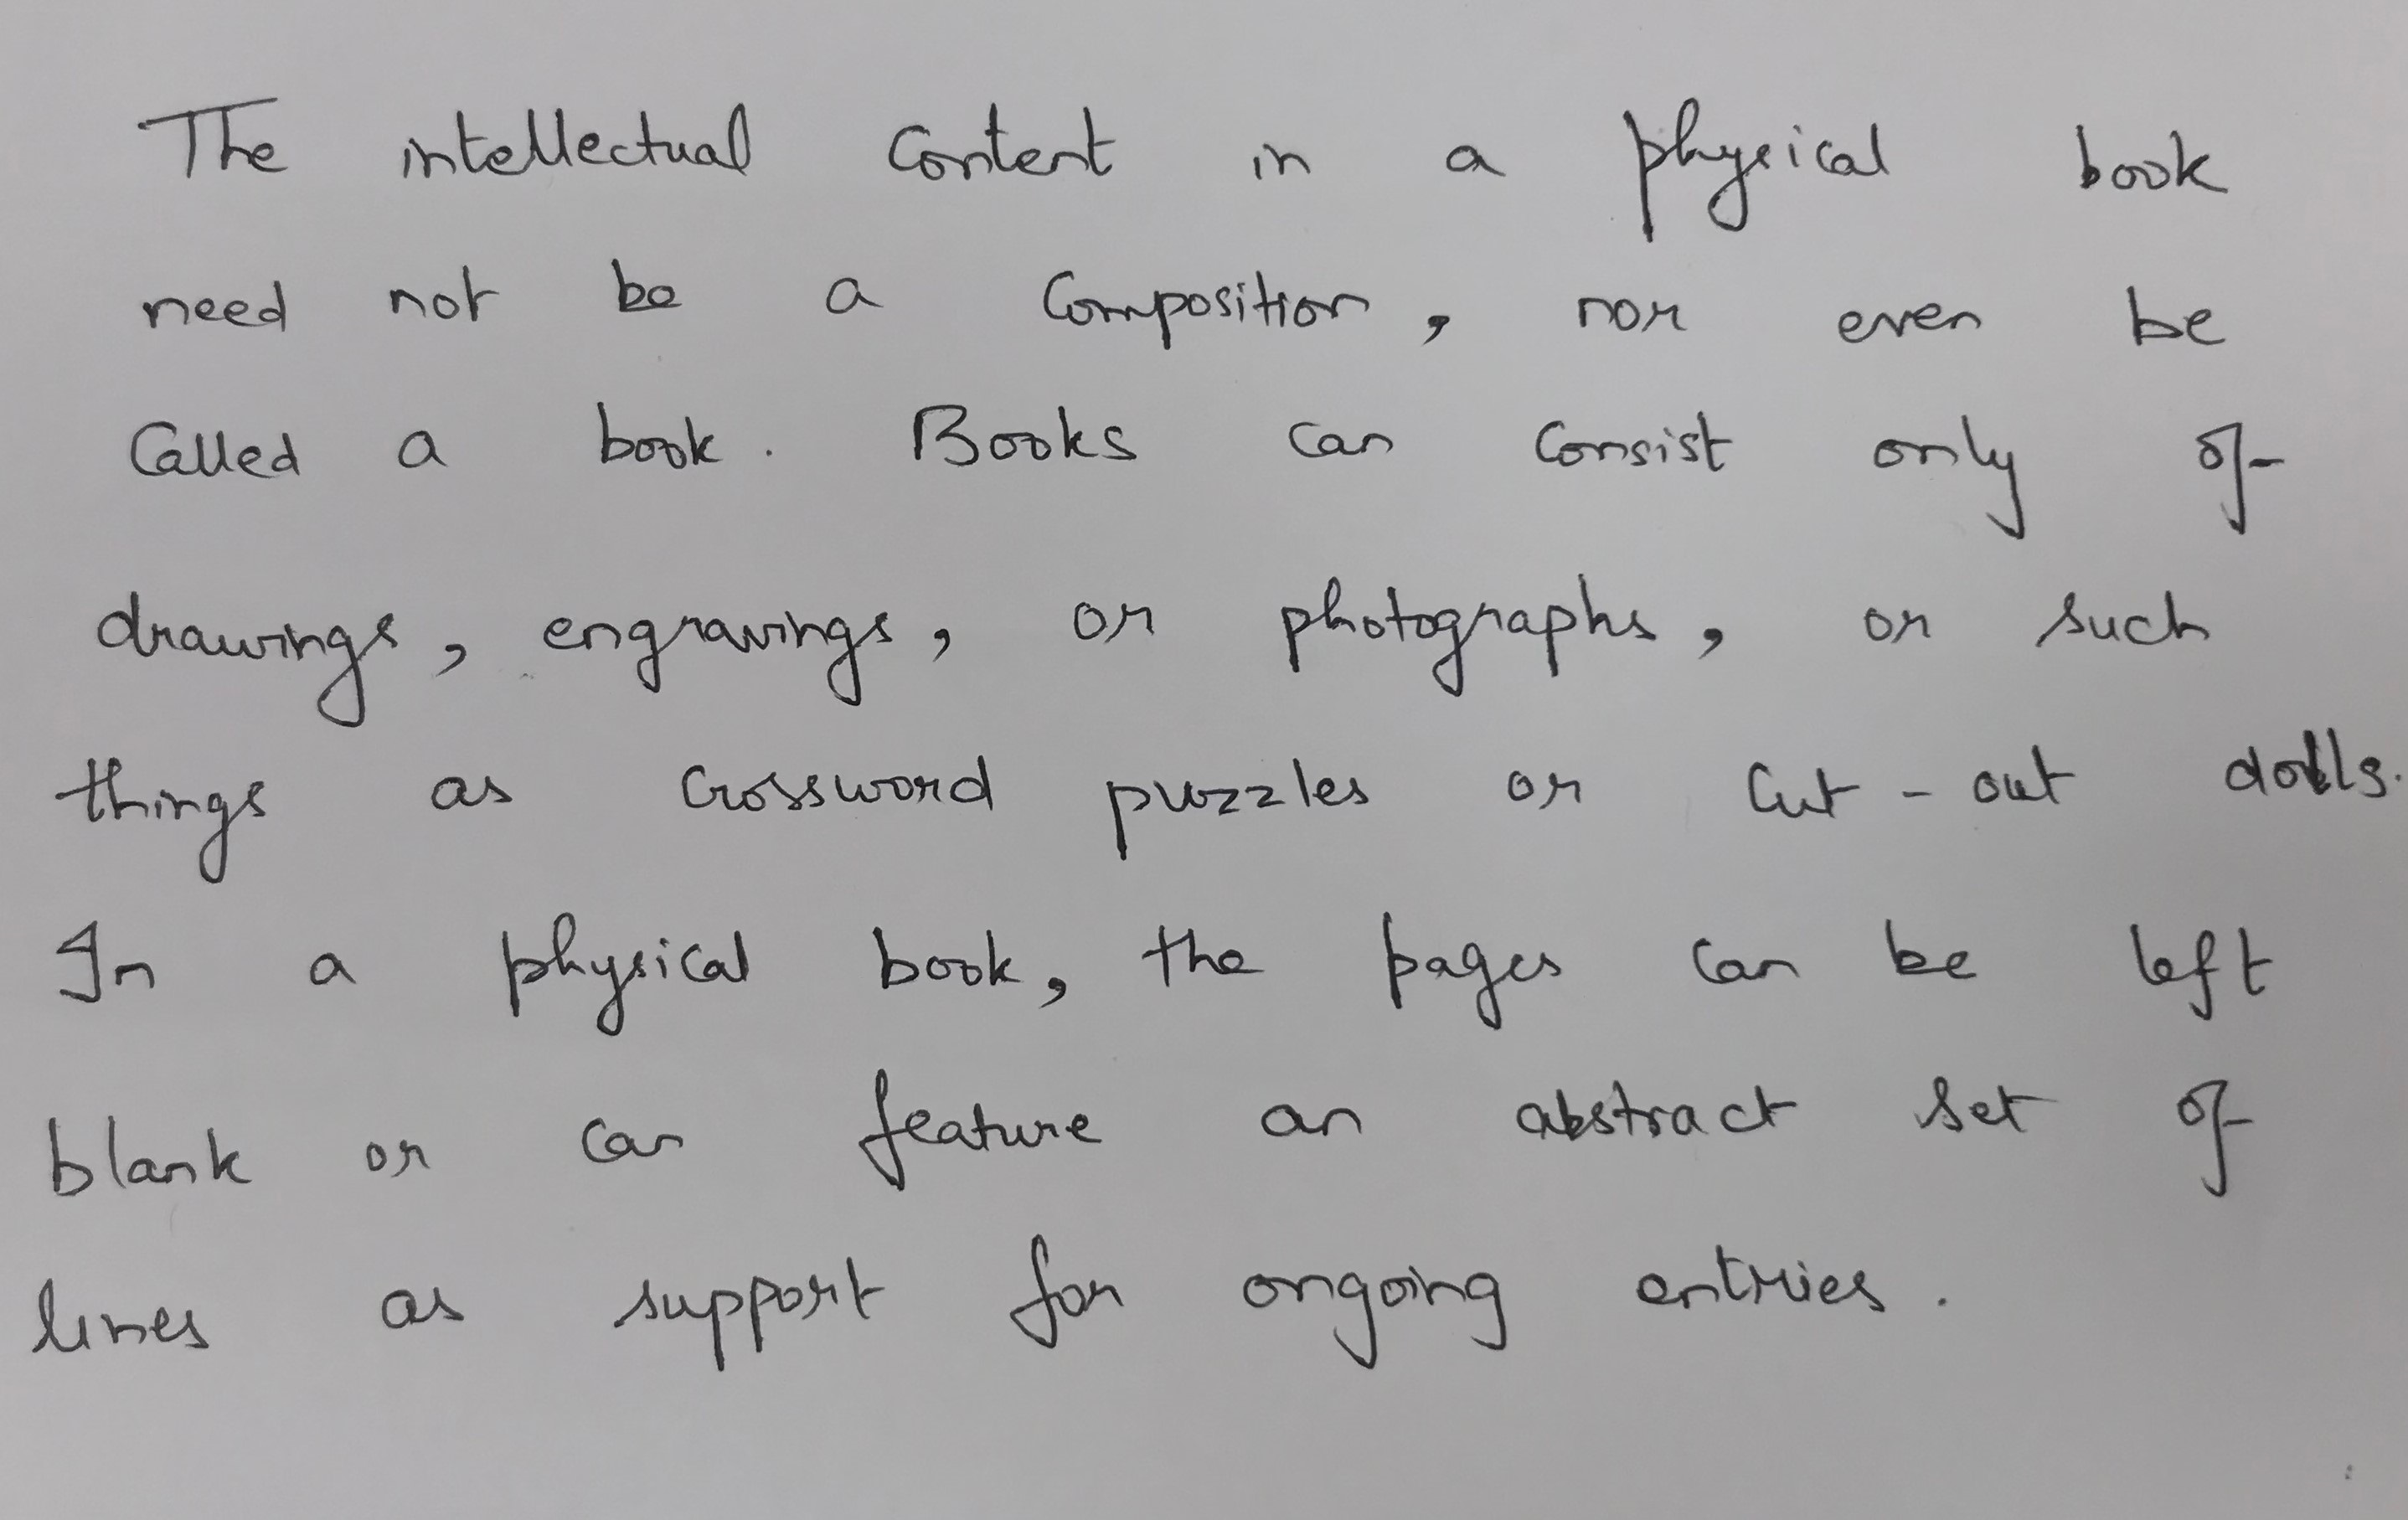 The intellectual content in a physical book
need not be a composition, nor even be
called a book. Books can consist only of
drawings, engravings, or photographs, or such
things as crossword puzzles or cut-out dolls.
In a physical book, the pages can be left
blank or can feature an abstract set of
lines as support for ongoing entries.